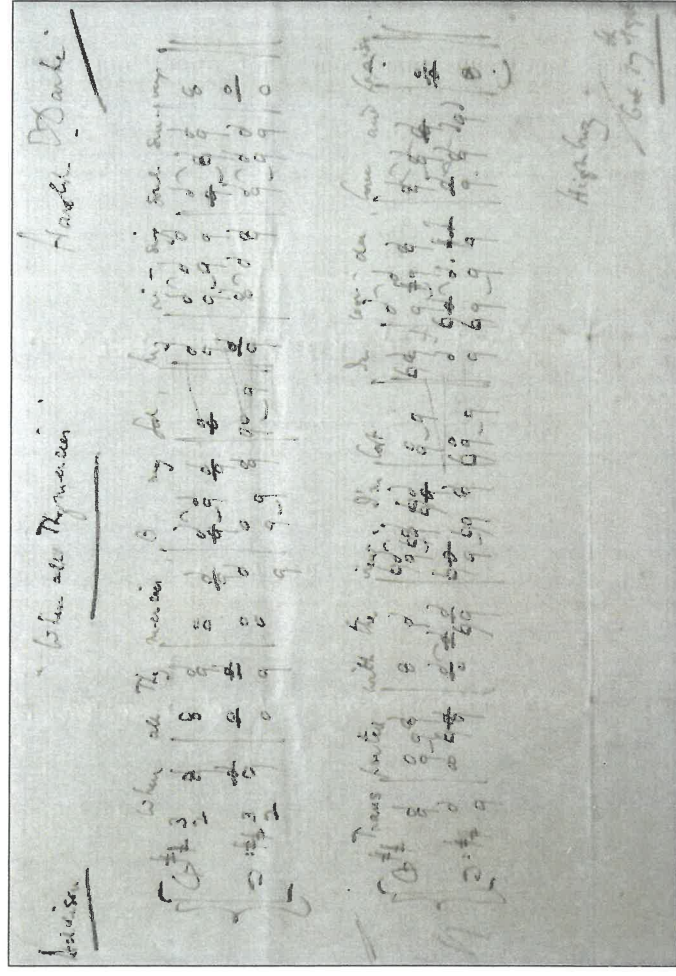 Addison “When all Thy mercies” Harold Darke.
When all Thy mercies O my God, my ri - sing soul surveys
3 2
3 2
Transported with the view, I'm lost In won - der, love and praise